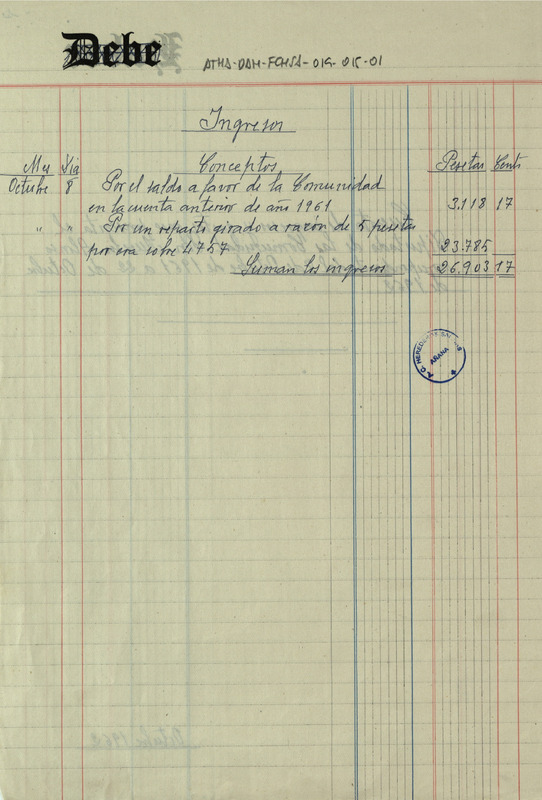 Debe
ATHA-DAH-FCHSA-019-015-01
Ingresos
Mes Dia Conceptos Pesetas Cents
Octubre 8 Por el saldo a favor de la Comunidad
en la cuenta anterior de año 1961 3.118 17
" " Por un reparto girado a razón de 5 pesetas
por era sobre 4757 23.785
Suman los ingresos 26.903 17
AÑANA